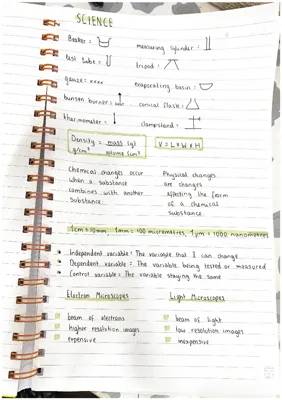 SCIENCE
Beaker :
measuring cylinder :
test tube :
tripod :
gauze : xxxx
evaporating basin :
bunsen burner :
conical flask :
thermometer :
clampstand :
Density = mass
g/cm³ volume cm³
V = L x W x H
Chemical changes occur
when a substance
combines with another
substance.
Physical changes
are changes
affecting the form
of a chemical
substance.
1cm = 10mm 1mm = 1000 micrometres, 1µm = 1000 nanometres
Independent variable : The variable that I can change
Dependent variable : The variable being tested or measured
Control variable : The variable staying the same
Electron Microscopes
Light Microscopes
beam of electrons
beam of light
higher resolution images
low resolution images
expensive
inexpensive